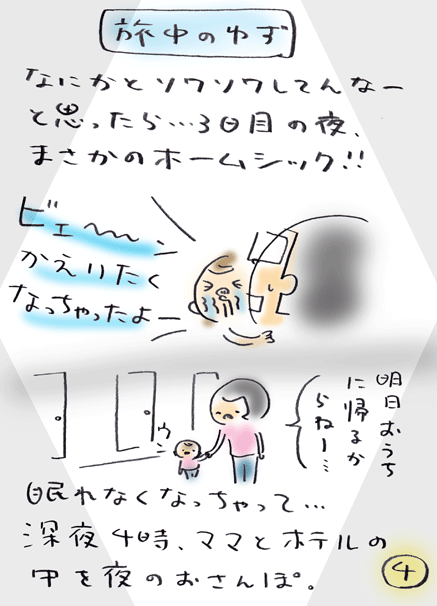 旅中のゆず
なにかとソワソワしてんなー
と思ったら…3日目の夜、
まさかのホームシック!!
ビエ〜〜ン
かえりたく
なっちゃったよー
明日おうち
に帰るか
らねー…
ウ
眠れなくなっちゃって…
深夜4時、ママとホテルの
中を夜のおさんぽ。
4